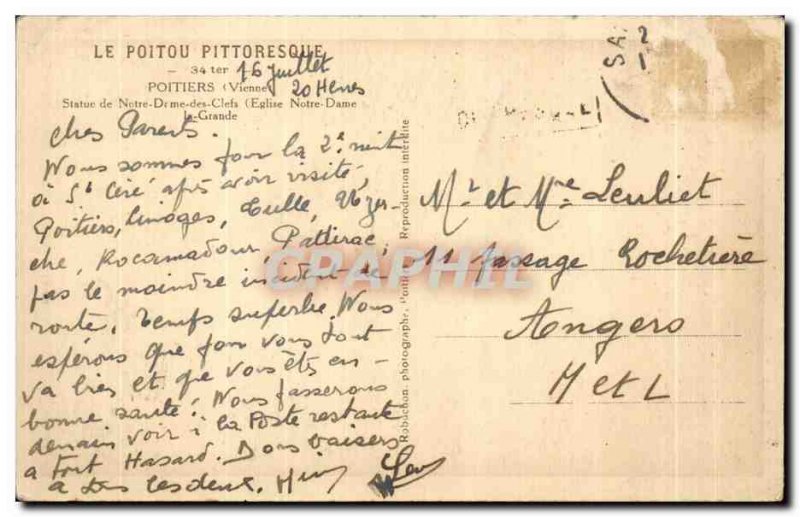 LE POITOU PITTORESQUE
— 34 ter
16 Juillet
POITIERS (Vienne)
20 Heures
Statue de Notre-Dame-des-Clefs (Eglise Notre-Dame
la-Grande
Chers Parents.
Nous sommes pour la 2e nuit
à St Céré après avoir visité,
Poitiers, Limoges, Tulle, Uzer-
che, Rocamadour Padirac,
pas le moindre incident de
route, temps superbe. Nous
espérons que pour vous tout
va bien et que vous êtes en
bonne santé. Nous passerons
demain voir à la Poste restante
a tout Hasard. Bons baisers
a tous les deux.
Robuchon, photographe, Poitiers Reproduction interdite
Mr et Mme Leuliet
11 passage Rochetière
Angers
M et L
SA
2
1
CPAPHIL